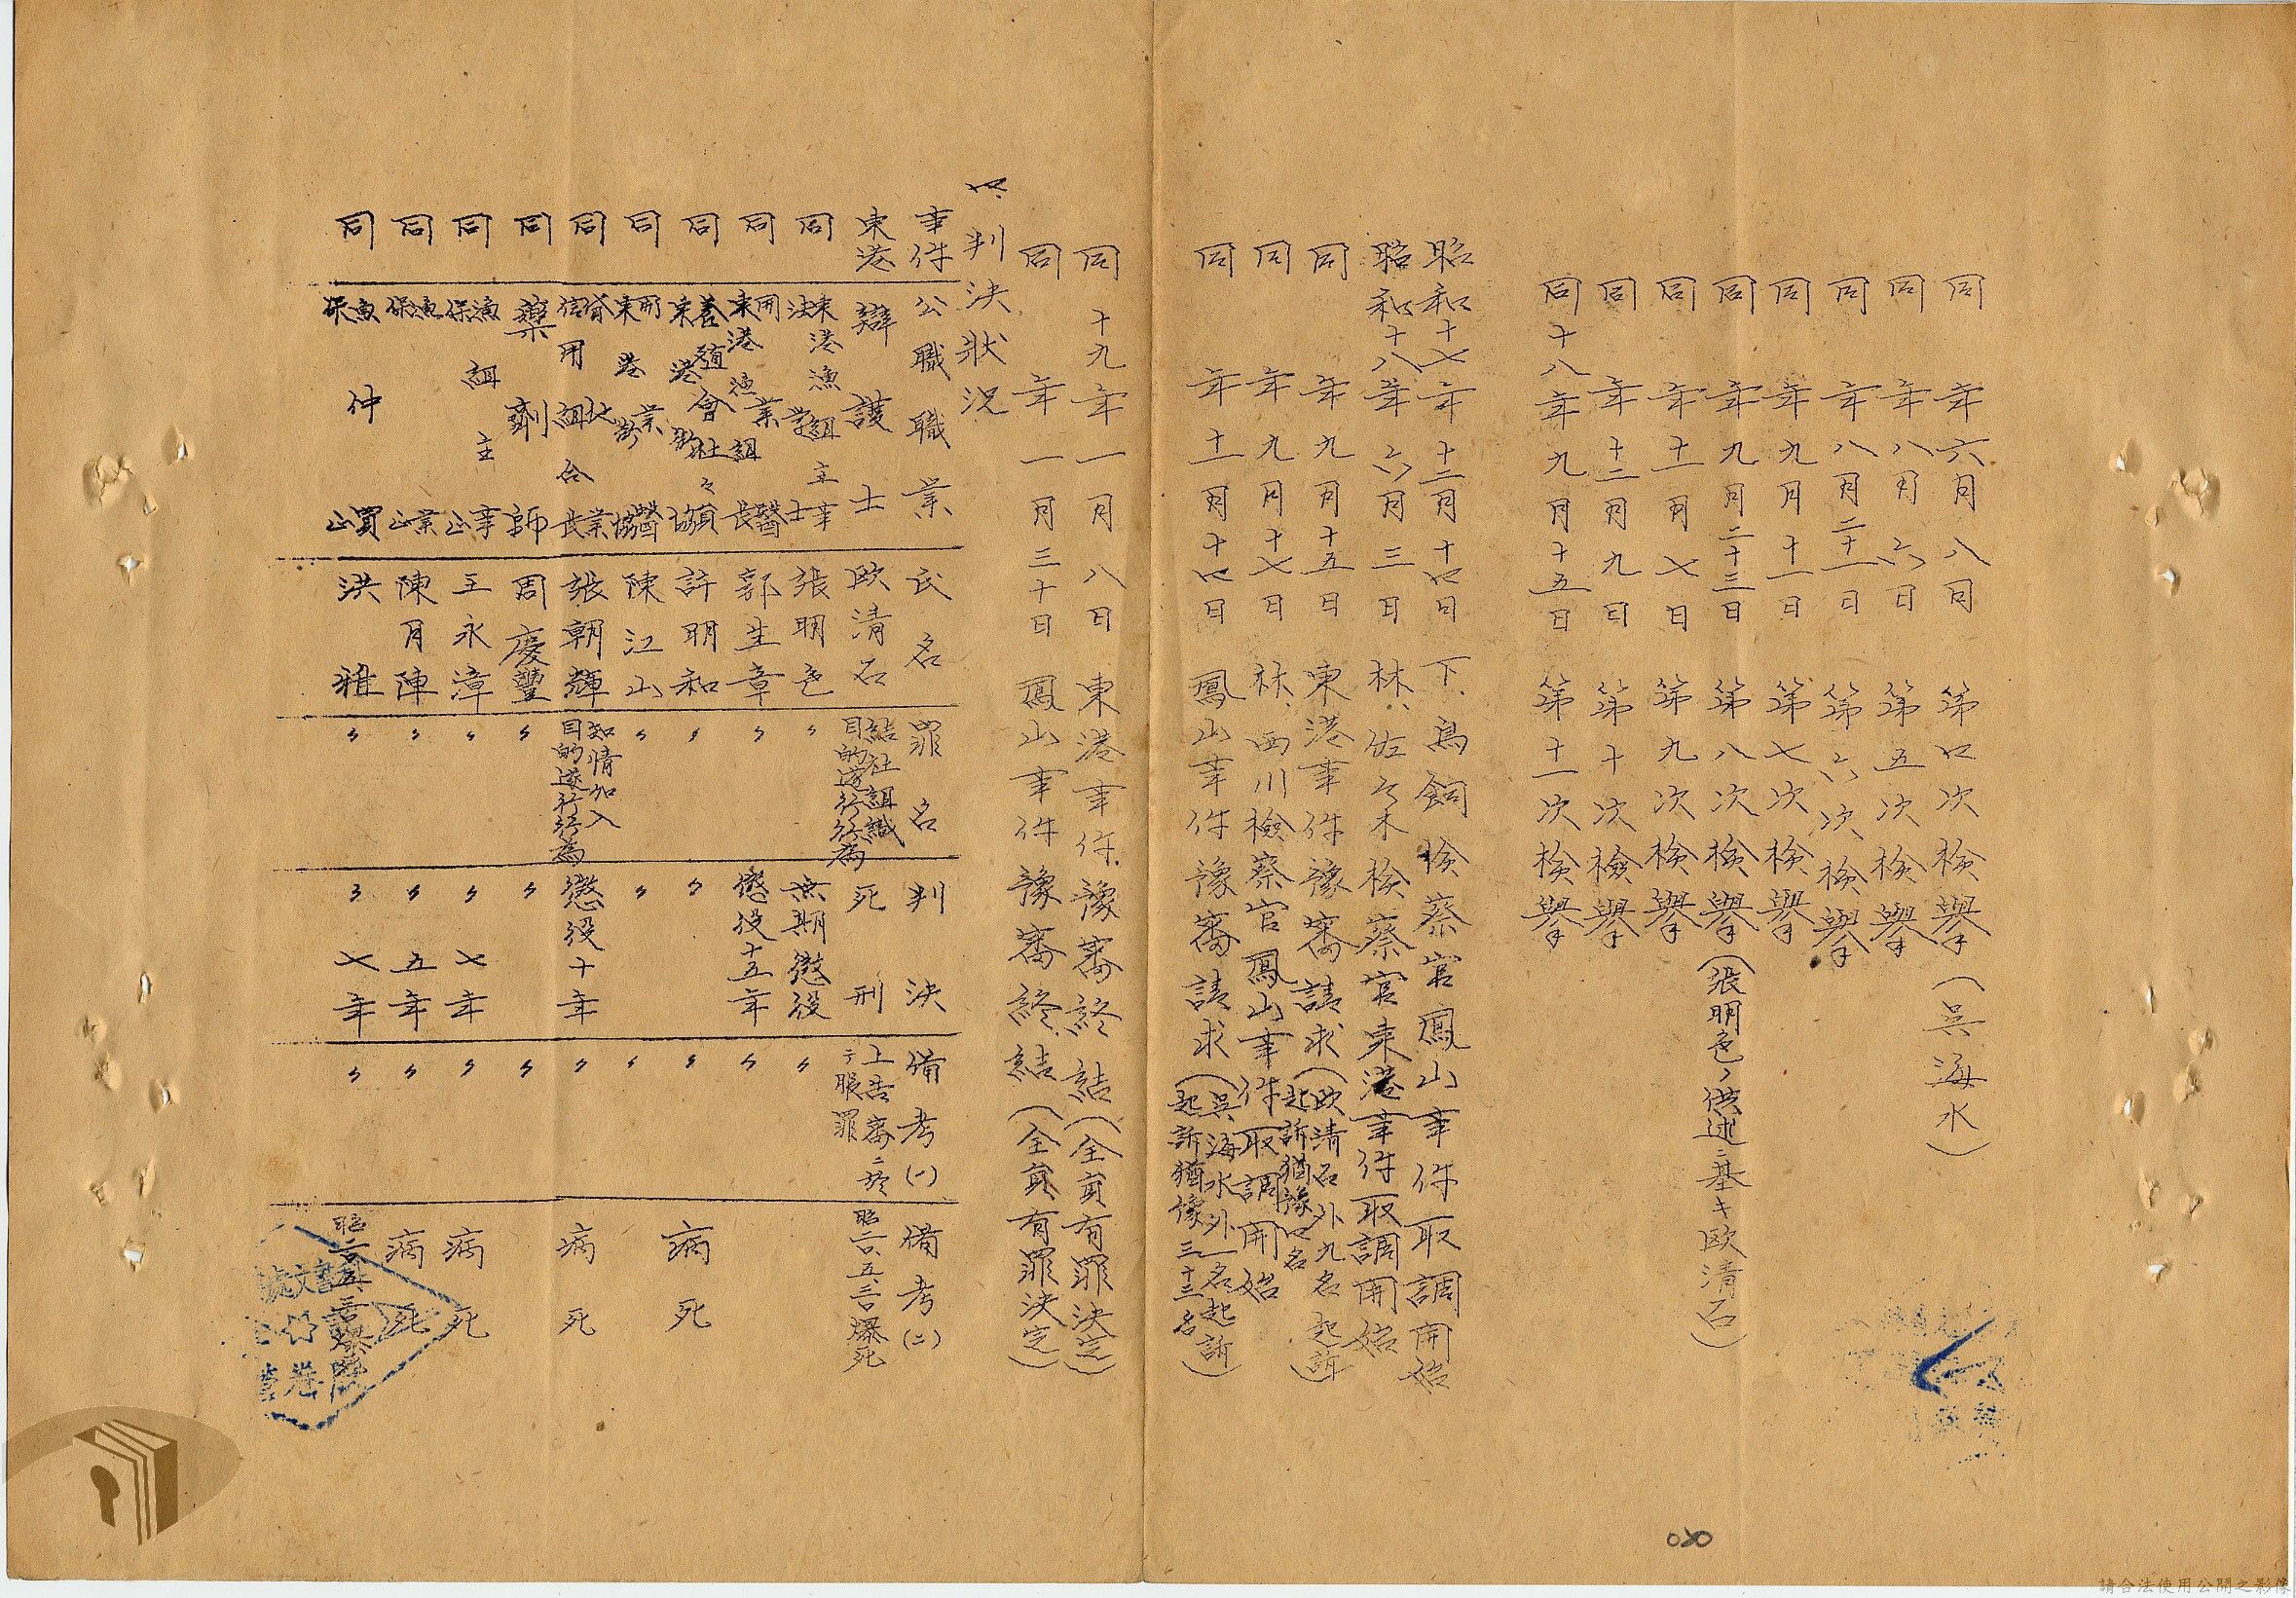 同年六月八日 第四次検挙(呉海水)
同年八月六日 第五次検挙
同年八月二十一日 第六次検挙
同年九月十一日 第七次検挙
同年九月二十三日 第八次検挙(張明色ノ供述ニ基キ欧清石)
同年十一月七日 第九次検挙
同年十二月九日 第十次檢挙
同十八年九月十五日 第十一次検挙
昭和十七年十二月十四日 下、鳥飼検察官鳳山事件取調開始
昭和十八年六月三日 林、佐々木検察官東港事件取調開始
同年九月十五日 東港事件豫審請求(欧清石外九名起訴 起訴猶豫四名)
同年九月十七日 林、西川檢察官鳳山事件取調開始
同年十一月十四日 鳳山事件豫審請求(呉海水外一名起訴 起訴猶豫三十三名)
同十九年一月八日 東港事件豫審終結(全員有罪決定)
同年一月三十日 鳳山事件豫審終結(全員有罪決定)
判決状況
事件 公職職業 氏名 罪名 判決 備考(一) 備考(二)
東港 辯護士 欧清石 結社組織 目的遂行行為 死刑 上告審ニ於テ服罪 昭二〇、五、三〇爆死
同 東港漁組主事 張明色 〃 無期懲役 〃
同 開業醫 東港漁業組長 郭生章 〃 懲役十五年 〃
同 養殖會社々員 許明和 〃 〃 〃 病死
同 開業醫 陳江山 〃 〃 〃
同 信用組合長 張朝輝 知情加入 目的遂行行為 懲役十年 〃 病死
同 藥劑師 周慶豐 〃 〃 〃
同 漁組主事 保正 王永漳 〃 〃七年 〃 病死
同 漁業 保正 陳月陣 〃 〃五年 〃 病死
同 魚仲買 保正 洪雅 〃 〃七年 〃
請合法使用公開之影像